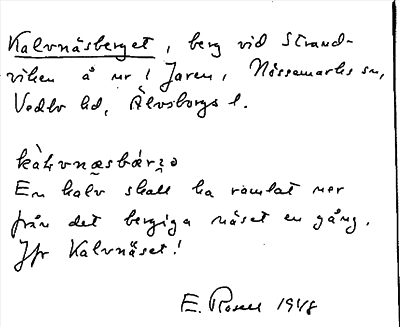 Kalvnäsberget, berg vid Strand-
viken å nr 1 Jaren, Nössemarks sn,
Vedbo hd, Älvsborgs l.
kàḷvnæsbár̡ə
En kalv skall ha ramlat ner
från det bergiga näset en gång.
Jfr Kalvnäset!
E. Rosell 1948